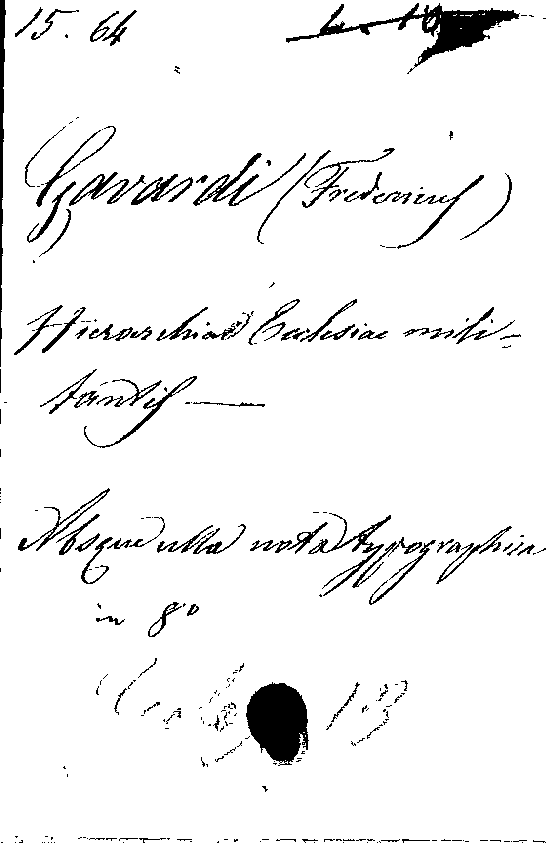 15. 64
Gavardi (Fredericus)
Hierarchiae Ecclesiae mili-
tantis —
Absque ulla nota typographica
in 8º
13